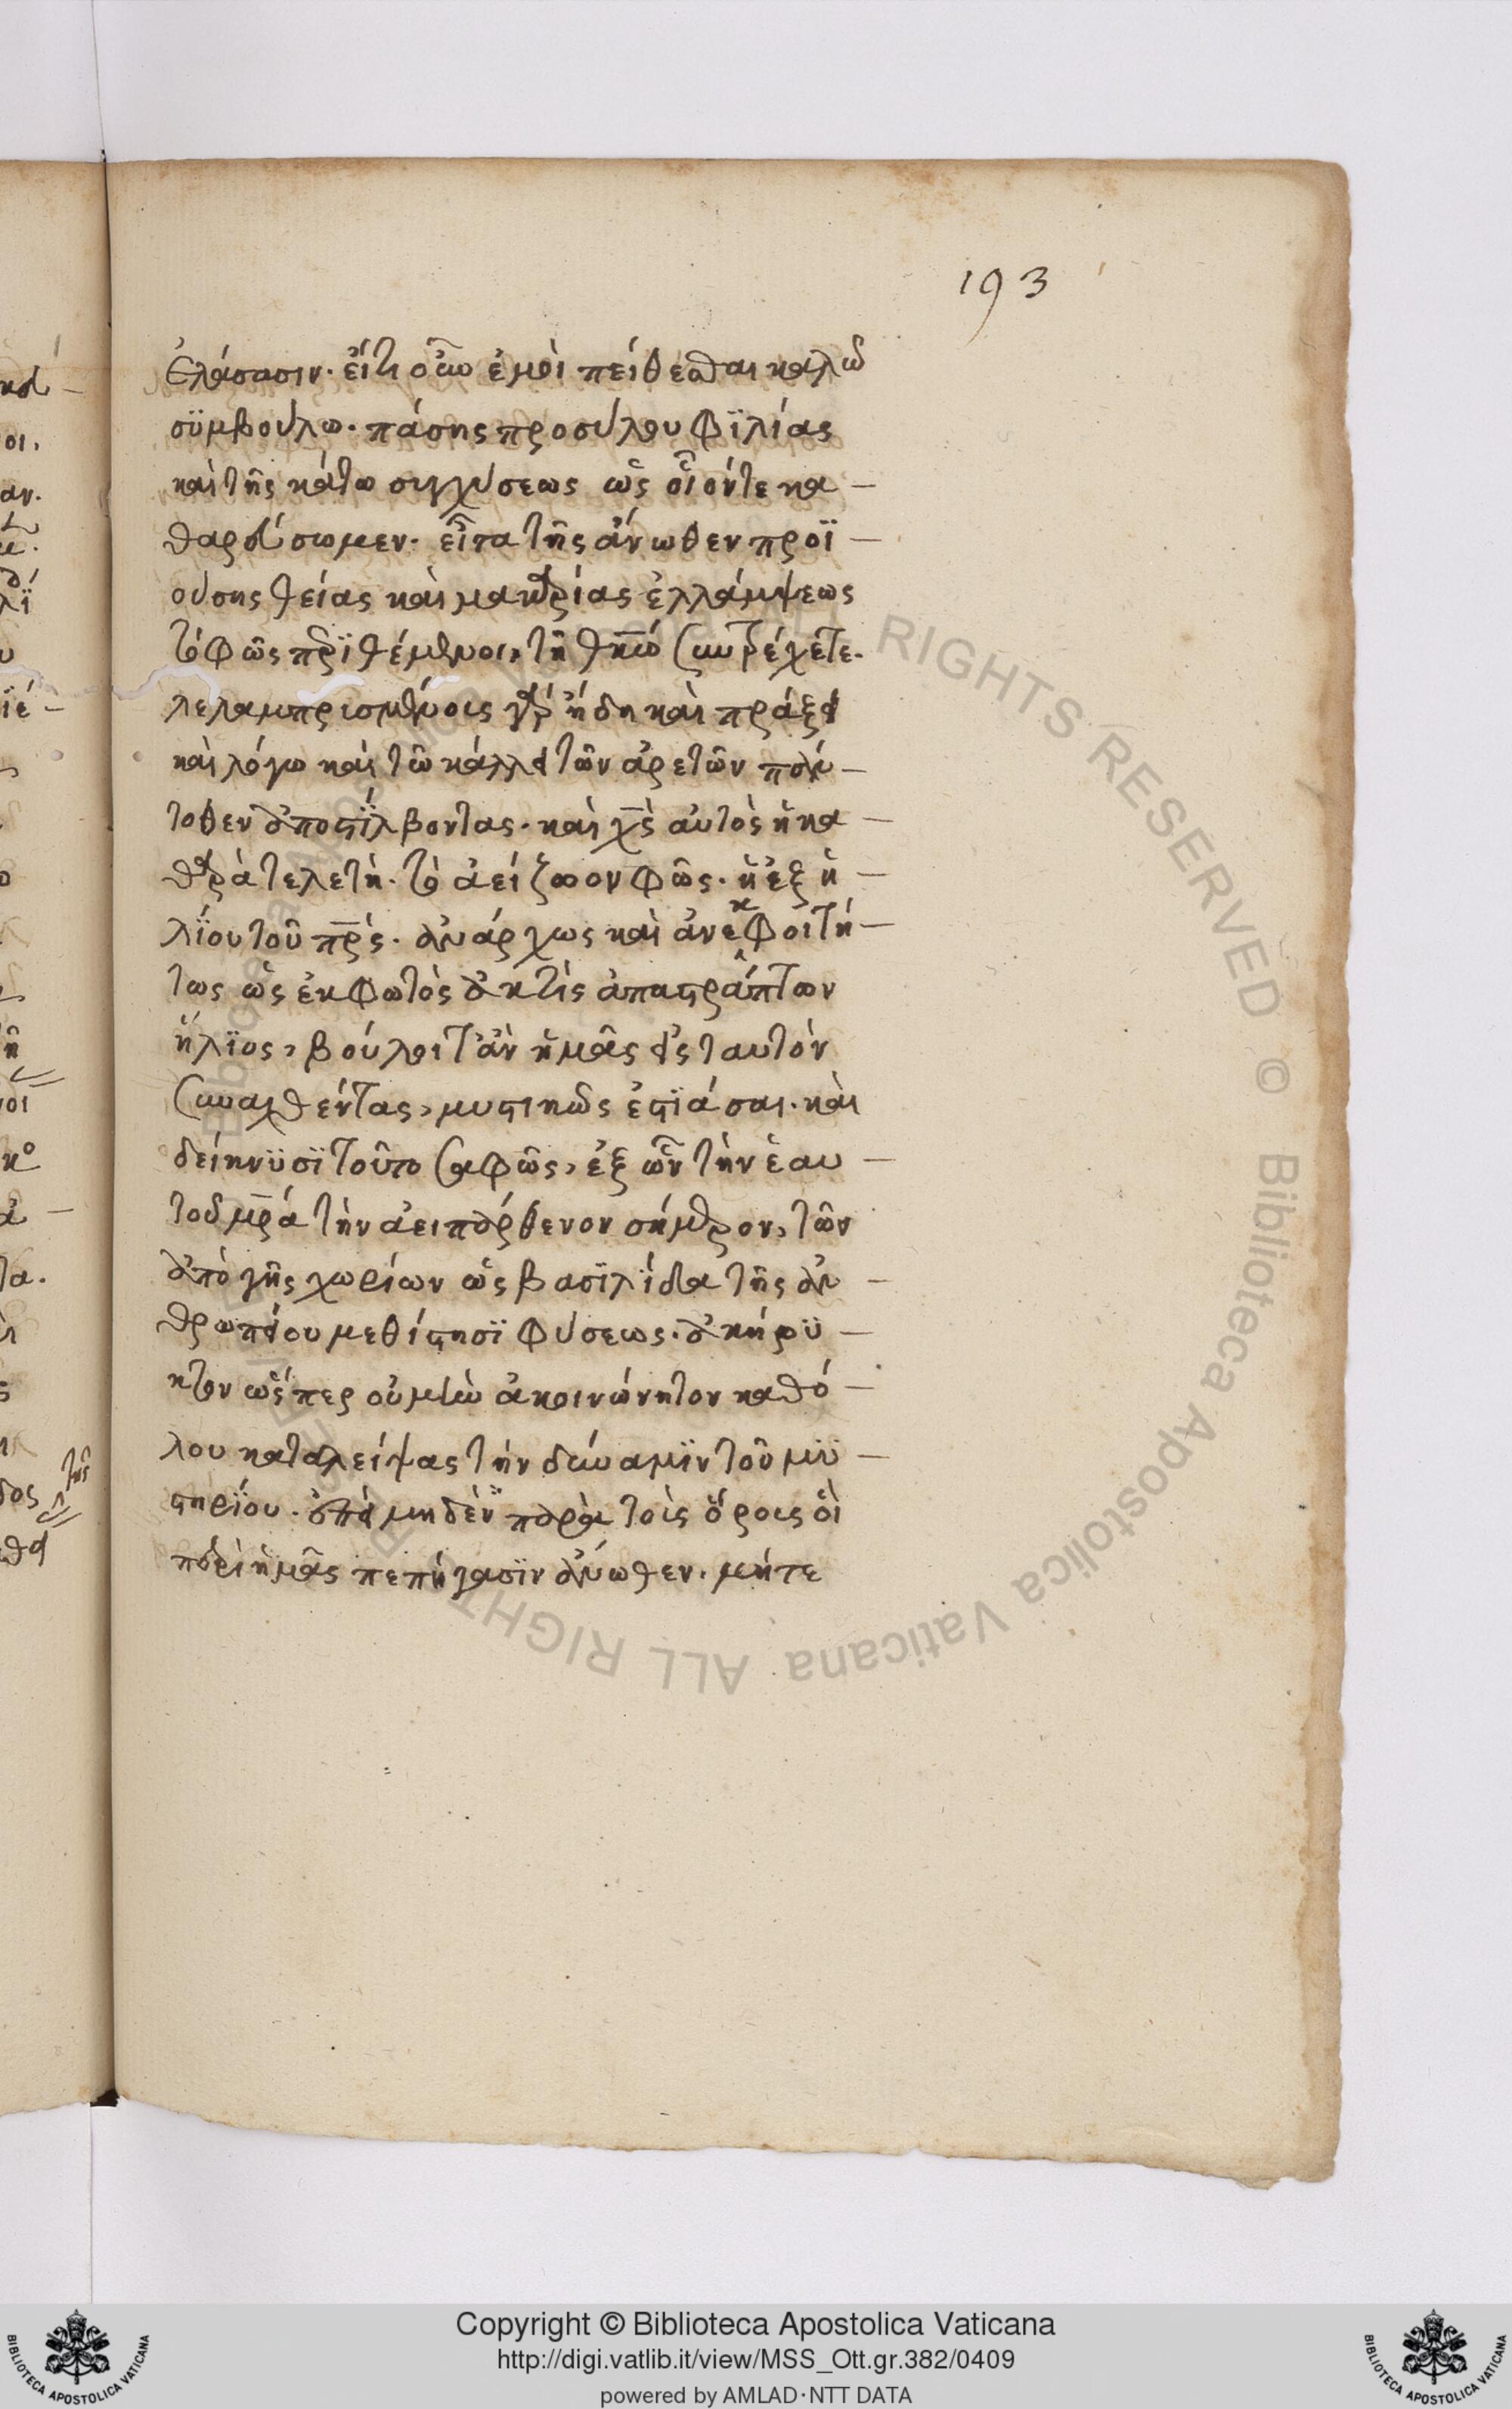 193
ἐλάσασιν. εἴ τι οὖν ἐμοὶ πείθεσθαι καλῶ
σϋμβούλω. πάσης προσύλου φϊλίας
καὶ τῆς κάτω συγχύσεως ὡς οἷόντε κα –
θαρεύσωμεν. εἶτα τῆς ἄνωθεν προϊ –
ούσης θείας καὶ μακαρίας ἐλλάμψεως
τὸ φῶς πρϊθέμενοι, τῆ θκῶ συντρέχετε.
λελαμπρισμένοις γὰρ ἤδη καὶ πράξει
καὶ λόγω καὶ τῶ κάλλει τῶν ἀρετῶν παν –
τοθεν ἀποστίλβοντας. καὶ χς αὐτὸς ἡ κα –
θαρὰ τελετὴ. τὸ ἀείζωον φῶς. ἡ ἐξ ἡ –
λίου τοῦ πρς. ἀνάρχως καὶ ἀνεκφοιτή –
τως ὡς ἐκ φωτὸς ἀκτὶς ἀπαστράπτων
ἥλϊος, βούλοιτ' ἂν ἡμᾶς εἰς ταυτὸν
συναχθέντας, μυστικῶς ἑστιάσαι. καὶ
δείκνϋσϊ τοῦτο σαφῶς, ἐξ ὧν τὴν ἑαυ –
τοῦ μρα τὴν ἀειπάρθενον σήμερον, τῶν
ἀπὸ γῆς χωρίων ὡς βασϊλίδα τῆς ἀν –
θρωπείου μεθίστησϊ φύσεως. ἀκήρϋ –
κτον ὥσπερ οὐμὴν ἀκοινώνητον καθό –
λου καταλείψας τὴν δύναμϊν τοῦ μϋ –
στηρίου. ἐπεὶ μηδὲν παρὰ τοῖς ὅροις οἳ
περὶ ἡμᾶς πεπήγασϊν ἄνωθεν. μήτε
Copyright © Biblioteca Apostolica Vaticana
http://digi.vatlib.it/view/MSS_Ott.gr.382/0409
powered by AMLAD·NTT DATA